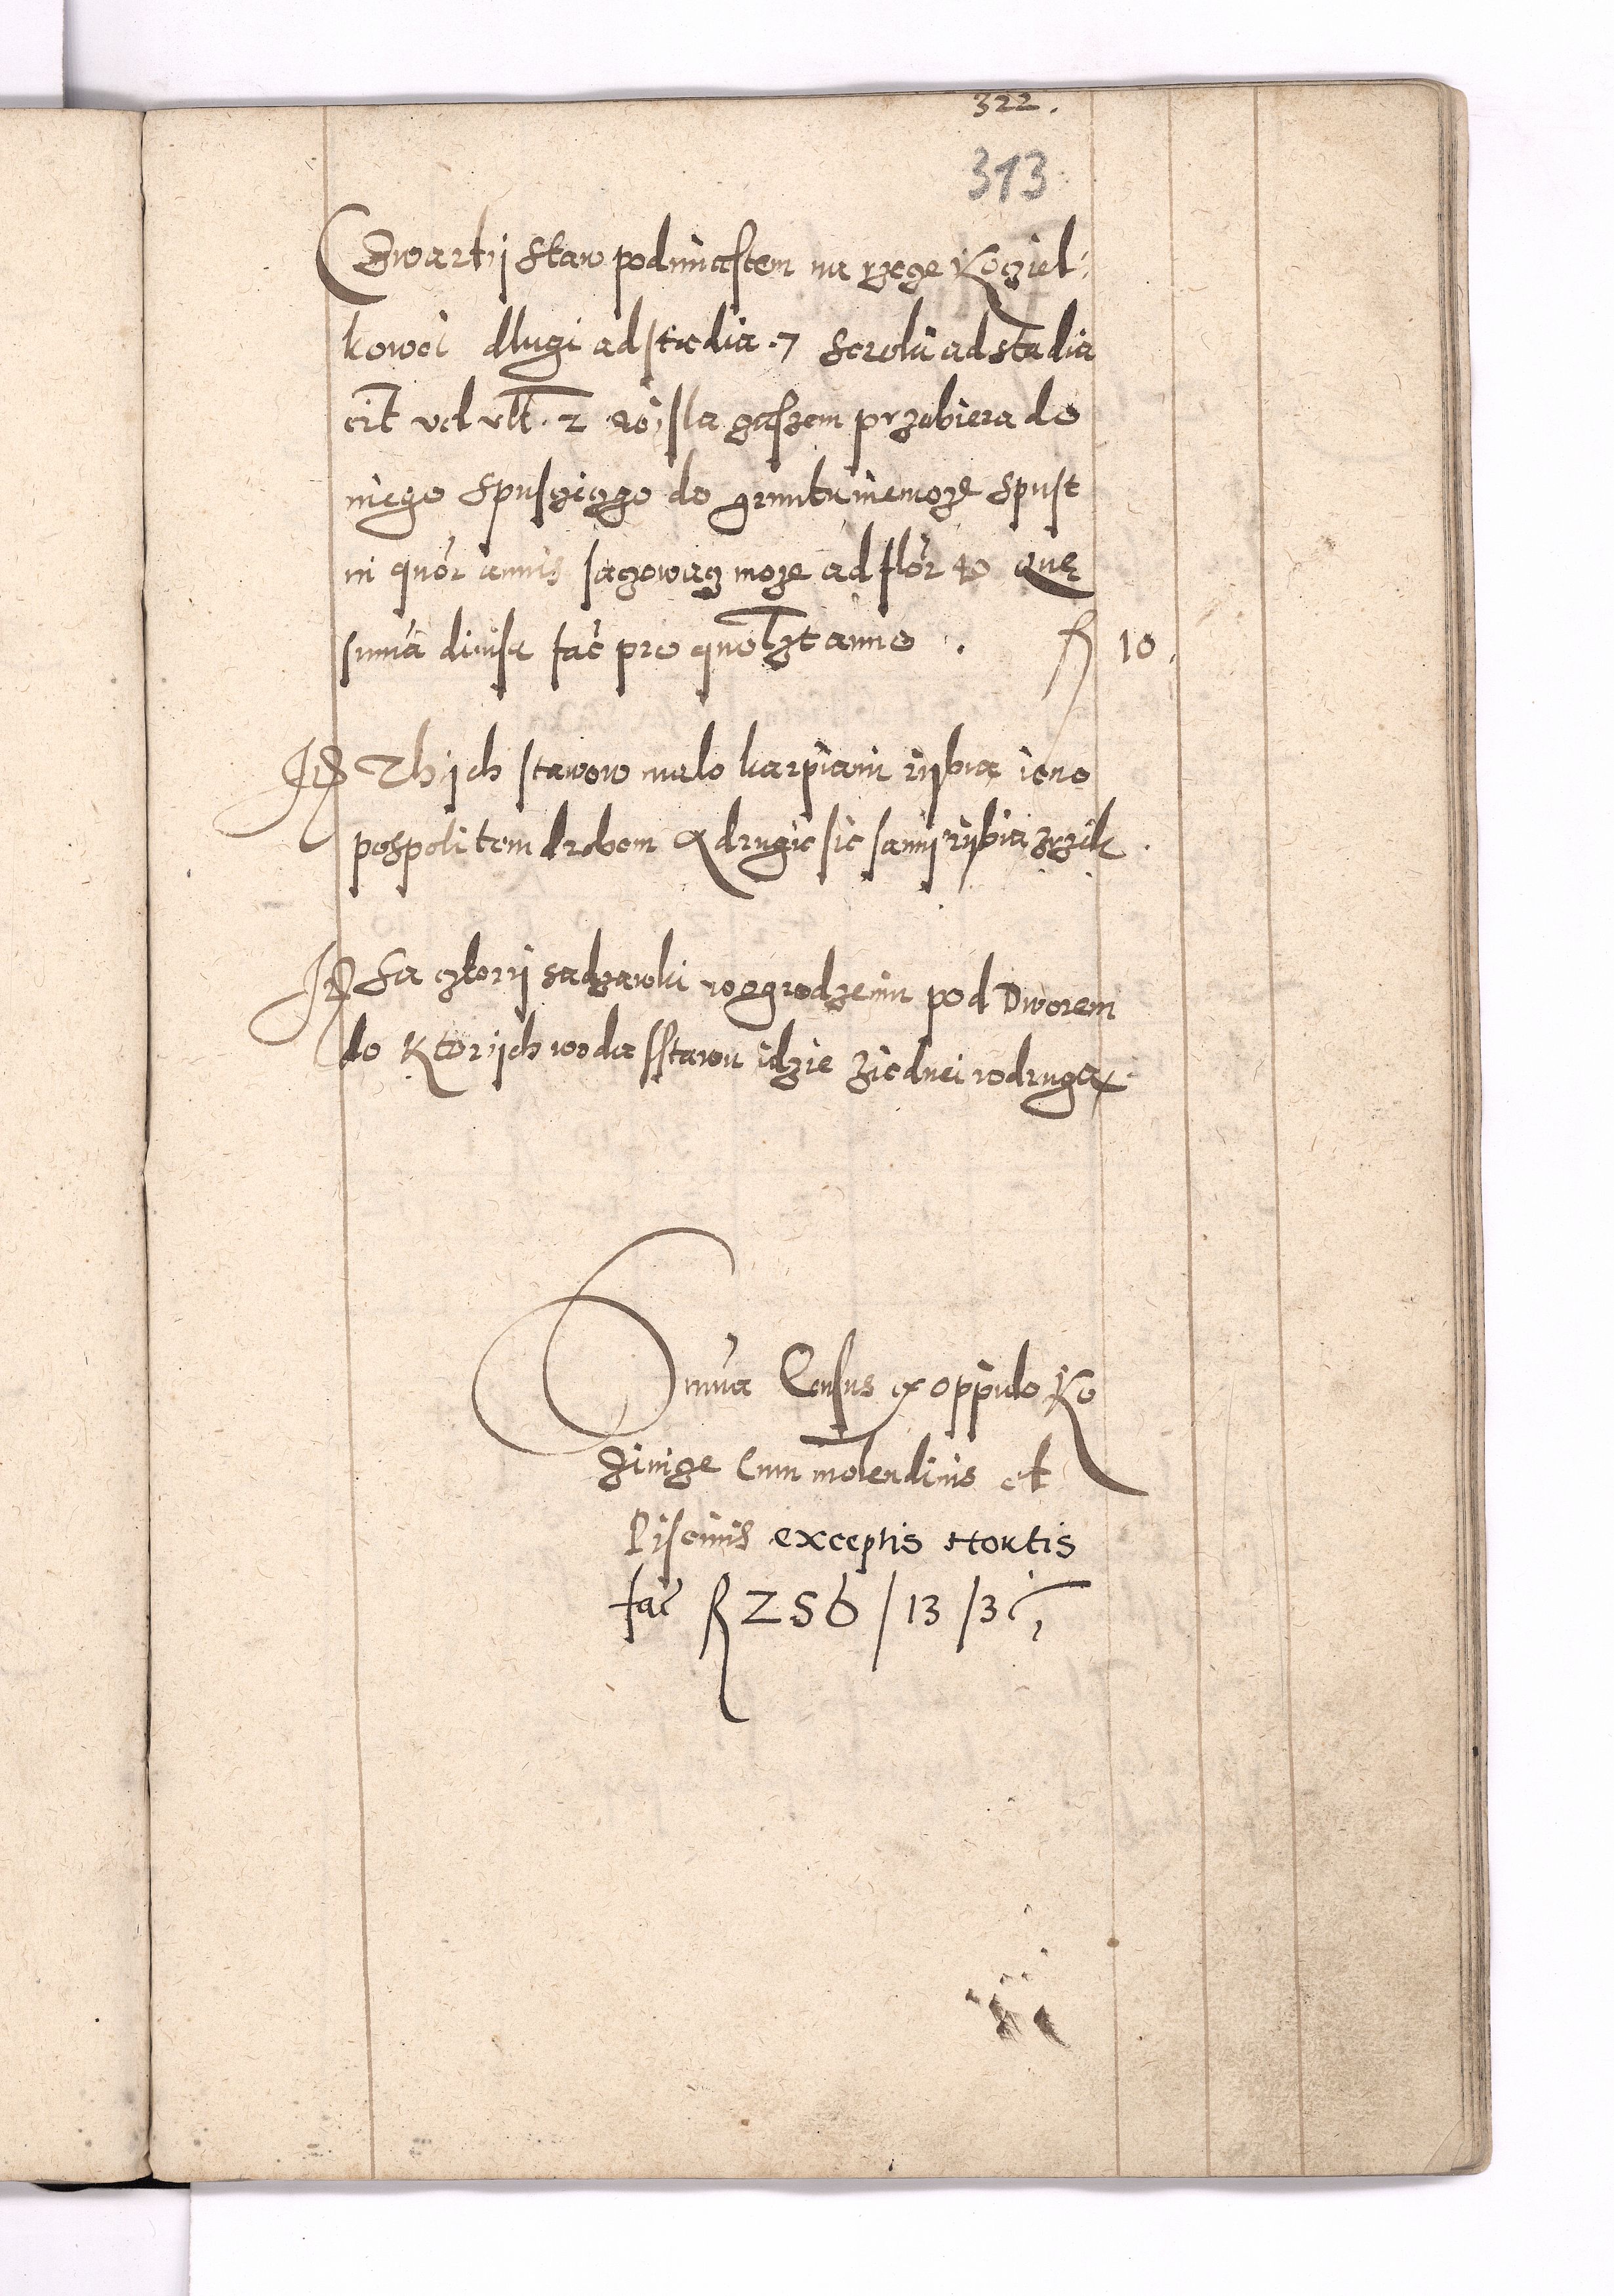 322.
313
Czwarthi staw pod miastem na rzece Koziel:
kowei dlugi ad stadia .7 seroki ad stadia
cit vel vlt. 2 Wisla czassem przebiera do
niego spuscicz go do gruntu niemoze spust
in quor annis sacowacz moze ad flor 40 que
suma divisa fac pro quolzt anno . fl 10.
It Thych stawow malo karpiami rybia ieno
pospolitem drobem A drugie sie samy rybia
It Sa cztery sadzawki w ogrodzeniu pod Dworem
do ktorych woda sstawu idzie ziednei w druga
Suma Census ex oppido Ko
zinize cum molendinis et
Piscinis exceptis Hortis
fac fl 256 / 13 / 3